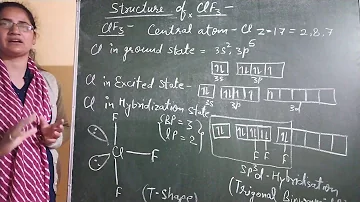 Structure of ClF3 -
ClF3 - Central atom - Cl Z - 17 = 2,8,7
Cl in ground state = 3s² 3p⁵
3s 3p
Cl in Excited State -
3s 3p 3d
Cl in Hybridization State
BP = 3
lP = 2
F F F
F
Cl F
F
Sp³d - Hybridisation
(T-Shape) (Trigonal